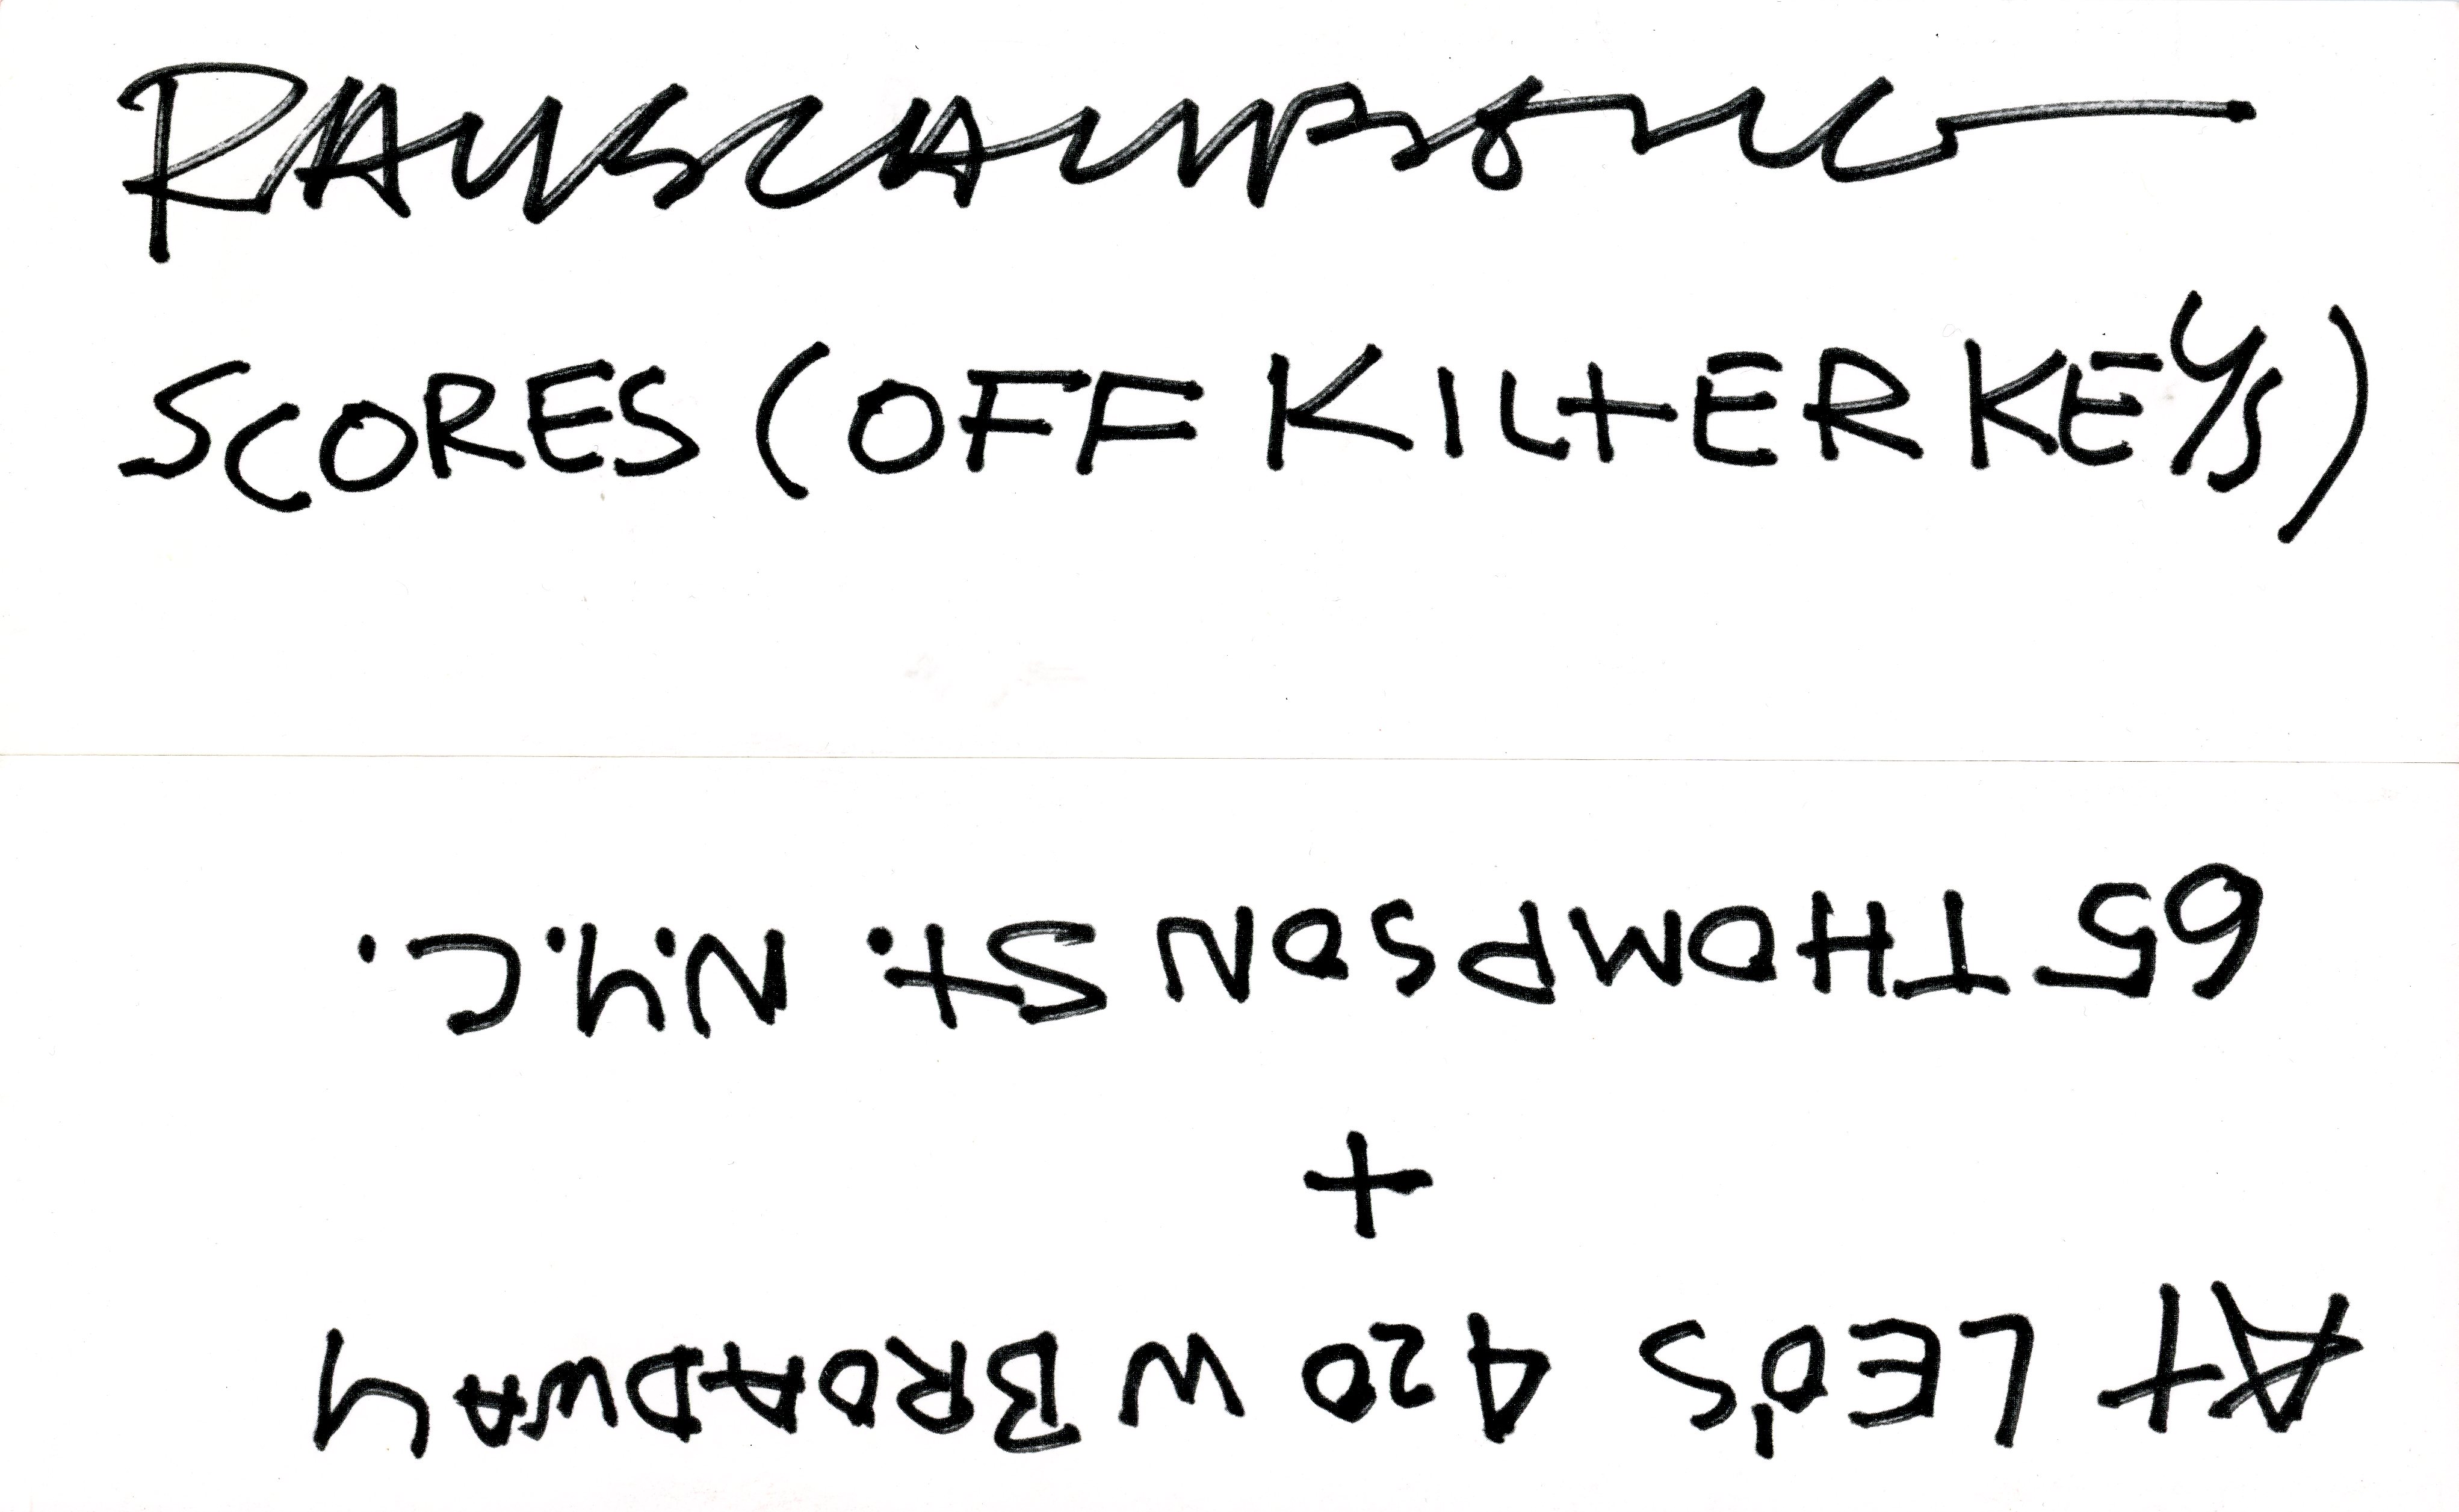 RAUSCHENBERG
SCORES (OFF KILTER KEYS)
AT LEO'S 420 W BROADWAY
+
65 THOMPSON ST. N.Y.C.